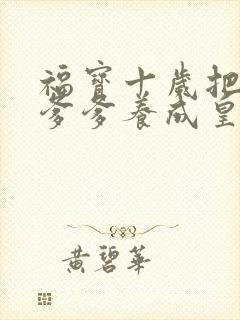 福寶十歲把
爹爹養成皇
黃碧華